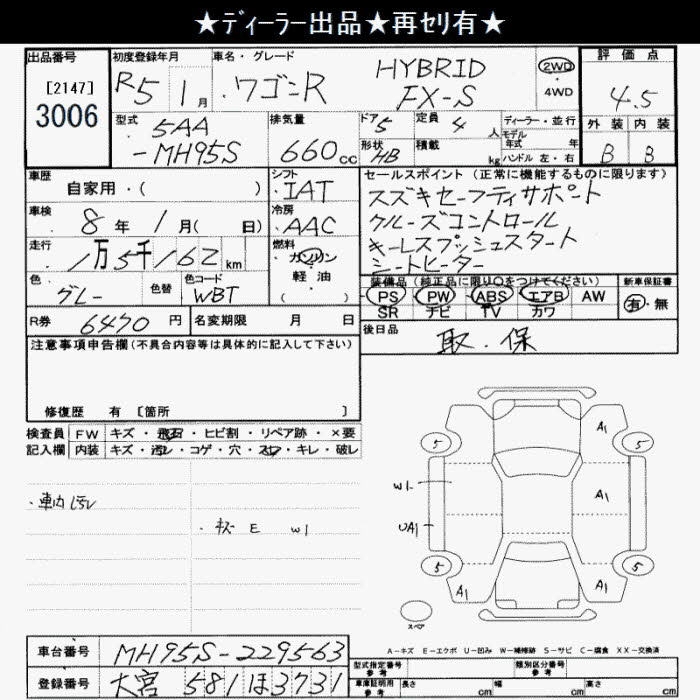 ★ディーラー出品★再セリ有★
出品番号 初度登録年月 車名・グレード 評価点
[2147]
3006
R5年 1月 ワゴンR HYBRID FX-S 2WD 4WD 4.5
型式 排気量 ドア 定員 ディーラー・並行 外装 内装
5AA-MH95S 660cc 5 4人 モデル年式 年 B B
形状 HB 積載 kg ハンドル 左・右
車歴 シフト セールスポイント (正常に機能するものに限ります)
自家用・( ) IAT スズキセーフティサポート
車検 冷房 クルーズコントロール
8年 1月( 日) AAC キーレスプッシュスタート
走行 燃料 シートヒーター
1万5千162km ガソリン
軽・油
( )
色 色替 色コード 装備品 (純正品に限り○をつけてください) 新車保証書
グレー WBT PS PW ABS エアB AW 有・無
SR ナビ TV カワ
R券 6470円 名変期限 月 日 後日品
取.保
注意事項申告欄(不具合内容等は具体的に記入して下さい)
修復歴 有 [箇所 ]
検査員 FW キズ・飛石・ヒビ割・リペア跡・×要
記入欄 内装 キズ・汚レ・コゲ・穴・スレ・キレ・破レ
・車内汚レ
・キズ E W1
A1
5 5
W1
A1
UA1
5 5
A1 A1
スペア
A-キズ E-エクボ U-凹み W-補修跡 S-サビ C-腐食 XX-交換済
車台番号 MH95S-229563 型式指定番号 参考 類別区分番号 参考
登録番号 大宮 581 ほ 3731 車庫証明用 参考 長さ cm 幅 cm 高さ cm